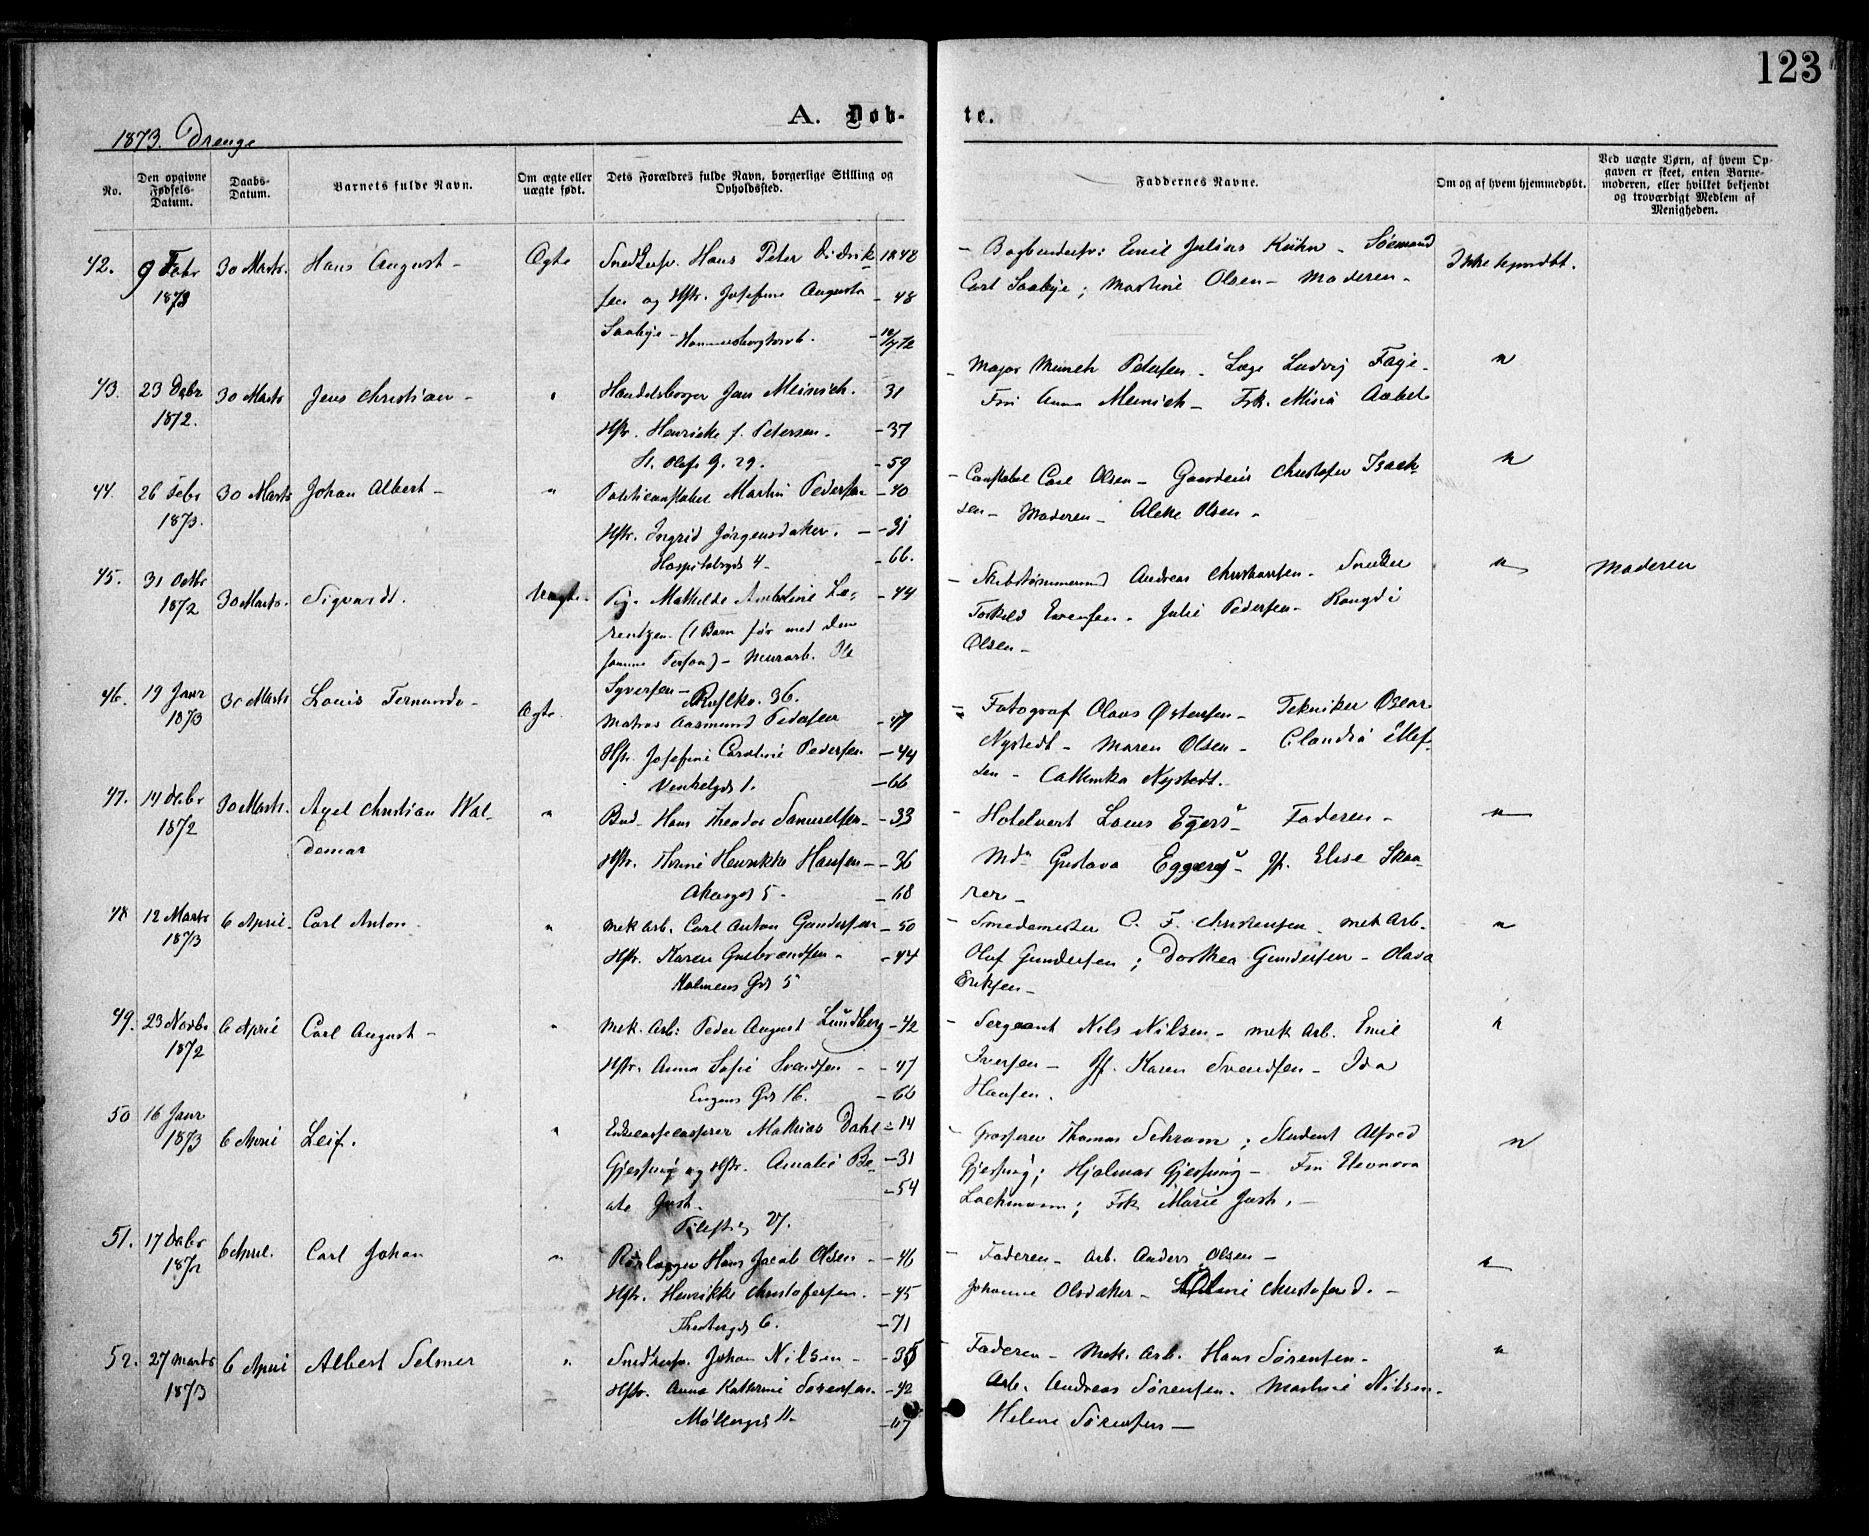 123
A. Døb- te.
1873. Drenge
No. Den opgivne Fødsels-Datum. Daabs-Datum. Barnets fulde Navn. Om ægte eller uægte født. Dets Forældres fulde Navn, borgerlige Stilling og Opholdssted. Faddernes Navne. Om og af hvem hjemmedøbt. Ved uægte Børn, af hvem Opgaven er skeet, enten Barnemoderen, eller hvilket bekjendt og troværdigt Medlem af Menigheden.
42. 9 Febr 30 Marts. Hans August - Ægte Snedkersv. Hans Peter Didrik- 1848 - Bogbindersv: Emil Julius Kühn - Sømand Ikke hjemdbt.
1873 sen og Hstr. Josefine Augusta - 48 Carl Saabye; Martine Olsen - Moderen -
Saabye - Hammersborg
43. 23 Debr 30 Marts Jens Christian - " Handelsborger Jens Meinich. 31 - Major Munch Petersen - Læge Ludvig Faye - "
1872. Hstr. Henrikke f. Petersen - - 37 Fru Anna Meinich - Frk. Mina Aabel
St. Olafs G. 29. - 59
44. 26 Febr 30 Marts Johan Albert - " Politiconstabel Martin Pedersen - 40 - Constabel Carl Olsen - Gaardeier Christofer Isach- "
1873. Hstr. Ingrid Jørgensdaker. - 31 sen - Moderen - Olsen -
Hospitalsgd 4 - - 66.
45. 31 Octbr 30 Marts. Sigvardt. Uægte - Pige Mathilde Lo- - 44 - Skibstømmermand Andreas Christiansen - Snedker " Moderen
1872 rentzen. (1 Barn før med den Torkild Evensen. Julie Pedersen - Rangdi
samme Person) - Murarb. Ole Olsen -
Syversen - 36.
46. 19 Janr 30 Marts Louis Fernando - Ægte. Matros Aasmund Pedersen - 47 - Fotograf Olaus Østensen - Tekniker Oscar
1873 Hstr. Josefine Caroline Pedersen - 44 Nystedt - Maren Olsen - Claudia Ellef-
Vinkelgd 1. - 66 sen - Cathinka Nystedt.
47. 14 Debr 30 Marts. Axel Christian Wal- " Bud - Hans Theodor Samuelsen - - 33 - Hotelvert Louis Eggers - Faderen - "
1872 demar Hstr. Henrikke Hansen - - 36 Mdm Gustava Eggers - Jf. Elise Skaa-
Akersgd 5 - - 68 rer -
48 12 Marts 6 April. Carl Anton. " Mek Arb. Carl Anton Gundersen - 50 - Smedemester C. F. Christensen - Mek Arb. "
1873 Hstr. Karen Gulbrandsen - - 44 Olaf Gundersen; Dorthea Gundersen - Olava
Holmens Gd 5 Eriksen -
49. 23 Novbr 6 April Carl August - " Mek. Arb: Peder August Lundberg - 42 - Sergeant Nils Nilsen - Mek Arb. Emil "
1872 Hstr. Anna Sofie Svendsen - - 47 Iversen - Jf. Karen Svendsen - Ida
Eugens Gd 16. - 66 Hansen.
50 16 Janr 6 April Leif. " Mathias Dahl - 14 - Grosserer Thomas Schram; Student Alfred "
1873 Gjersing og Hstr. Amalie Be- - 31 Gjersing; Hjalmar Gjersing - Fru Eleonora
ate Just. - 54 Lochmann; Frk Marie Just. -
Pilest. 27.
51. 17 Debr 6 April. Carl Johan " Rørlægger Hans Jacob Olsen - - 46 - Faderen - Arb. Anders Olsen - "
1872 Hstr. Henrikke Christofersen. - 45 Johanne Olsdaker - Christofersd. -
6. - 71
52. 27 Marts 6 April Albert Selmer " Snedkersv. Johan Nilsen - - 35 - Faderen - Mek. Arb. Hans Sørensen - "
1873 Hstr. Anna Katherine Sørensen. - 42 Arb. Andreas Sørensen. Martine Nilsen.
Møllergd 11 - - 67 Helene Sørensen -